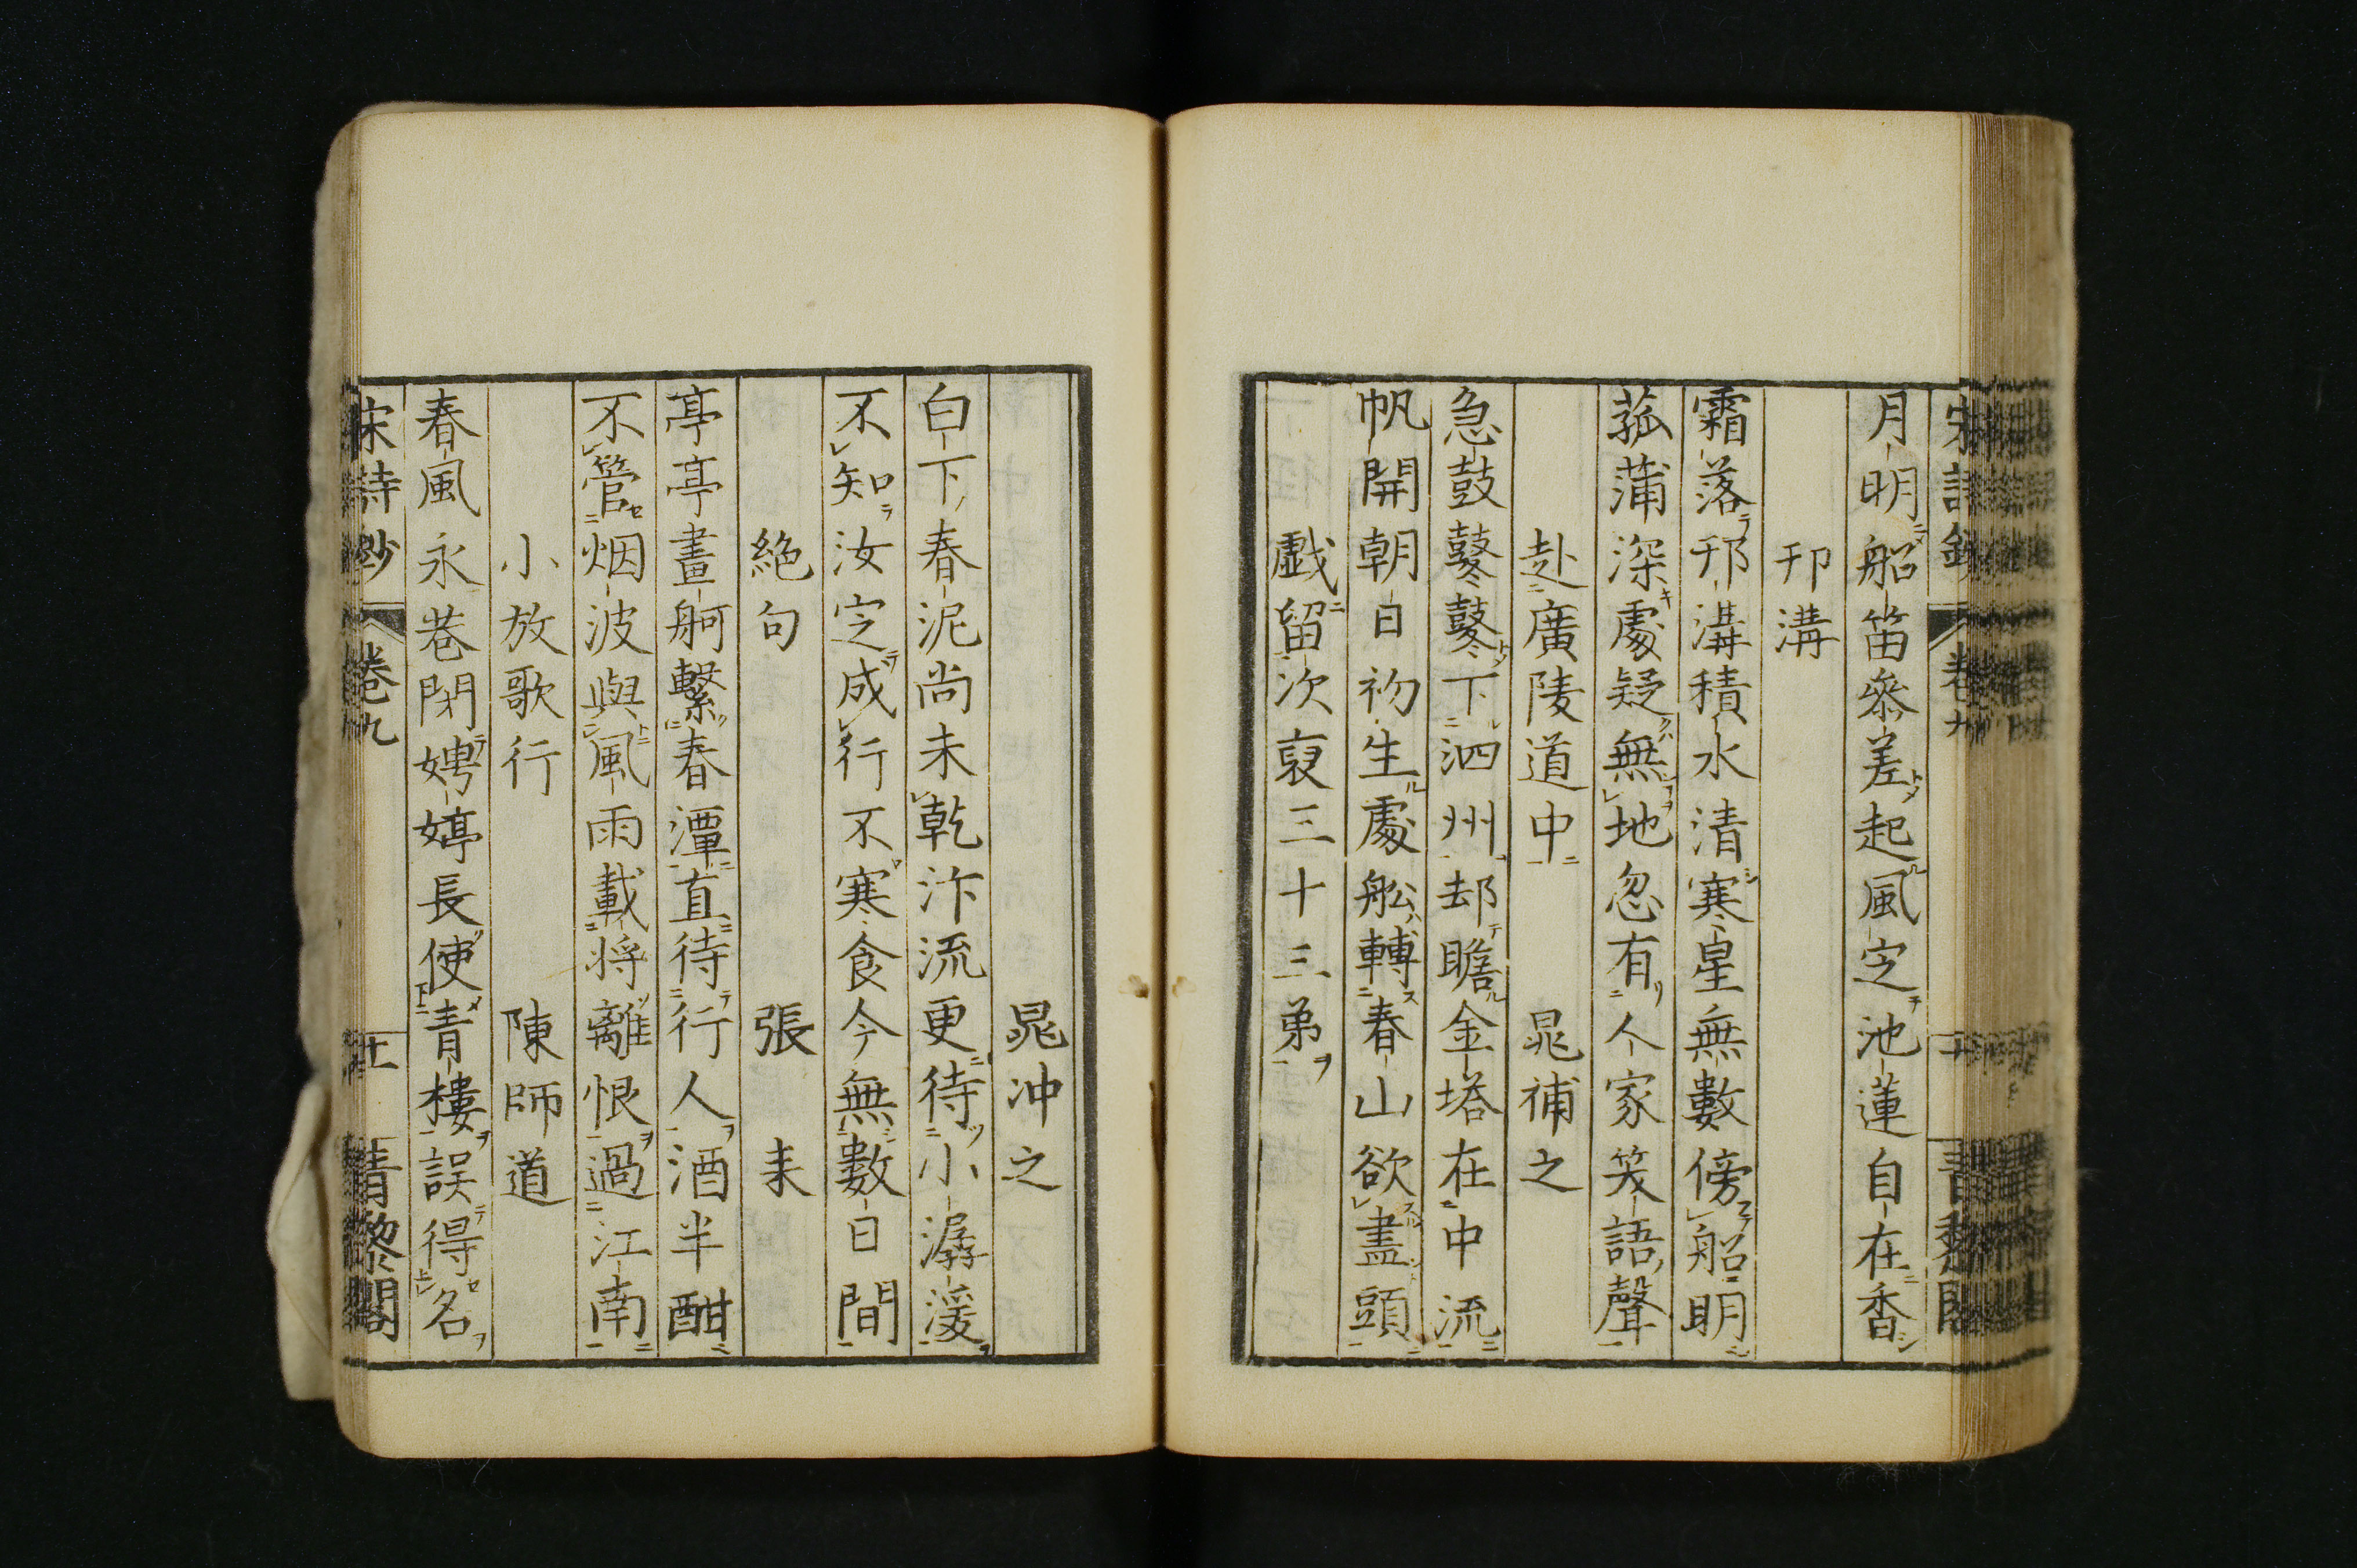 月明船笛參差起風定池蓮自在香
邗溝
霜落邗溝積水清寒星無數傍船明
菰蒲深處疑無地忽有人家笑語聲
赴廣陵道中 晁補之
急鼓鼕鼕下泗州却瞻金塔在中流
帆開朝日初生處舩轉春山欲盡頭
戯留次裒三十三弟
晁冲之
白下春泥尚未乾汴流更待小潺湲
不知汝定成行不寒食今無數日間
絶句 張耒
亭亭畫舸繫春潭直待行人酒半酣
不管烟波與風雨載将離恨過江南
小放歌行 陳師道
春風永巷閉娉婷長使青樓誤得名
宋詩鈔 卷九 十一 青黎閣